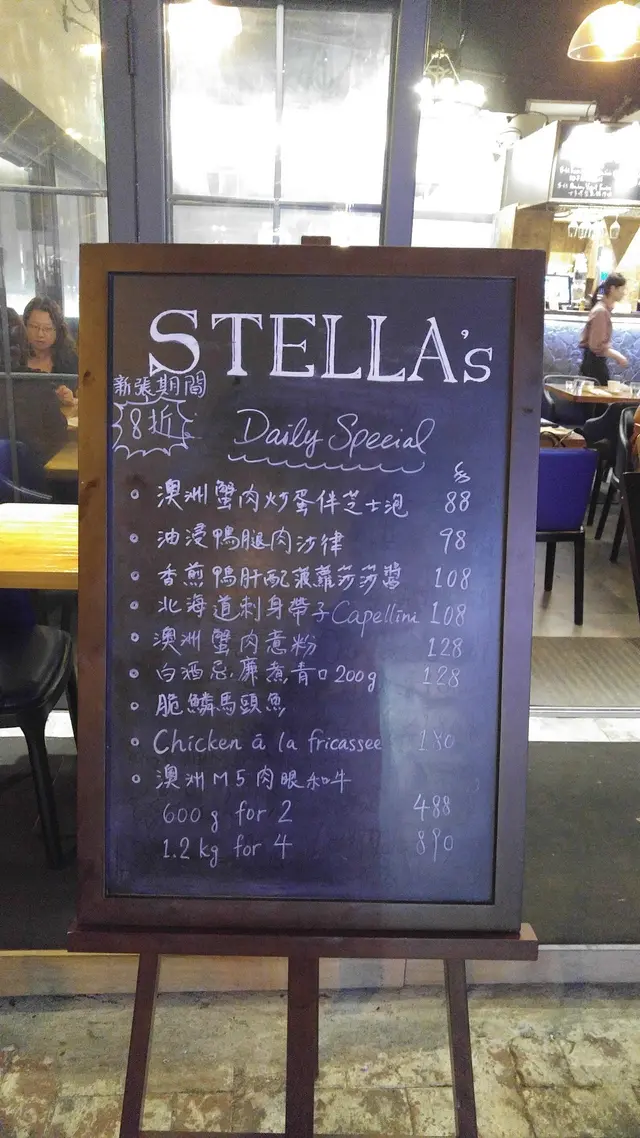 STELLA's
新張期間
8折
Daily Special
$
澳洲蟹肉炒蛋伴芝士泡 88
油浸鴨腿肉沙律 98
香煎鴨肝配菠蘿莎莎醬 108
北海道刺身帶子Capellini 108
澳洲蟹肉意粉 128
白酒忌廉煮青口200g 128
脆鱗馬頭魚
Chicken á la fricassee 180
澳洲M5肉眼和牛
600g for 2 488
1.2kg for 4 890